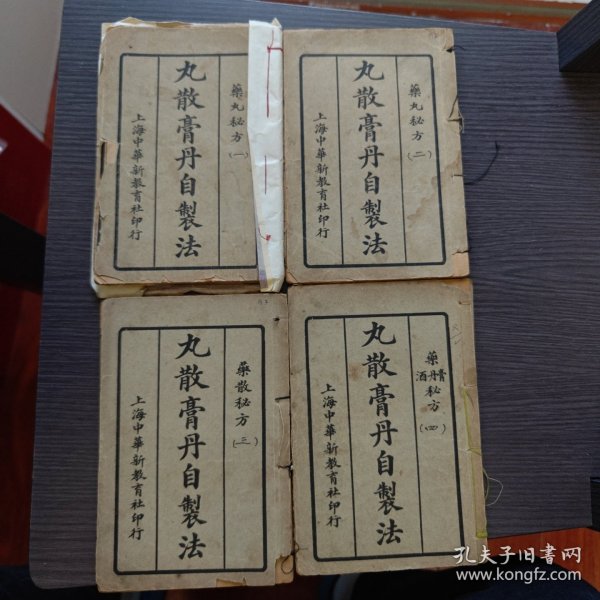 藥丸秘方(一)
丸散膏丹自製法
上海中華新教育社印行
藥丸秘方(二)
丸散膏丹自製法
上海中華新教育社印行
藥散秘方(三)
丸散膏丹自製法
上海中華新教育社印行
藥膏丹酒秘方(四)
丸散膏丹自製法
上海中華新教育社印行
孔夫子旧书网
www.kongfz.com